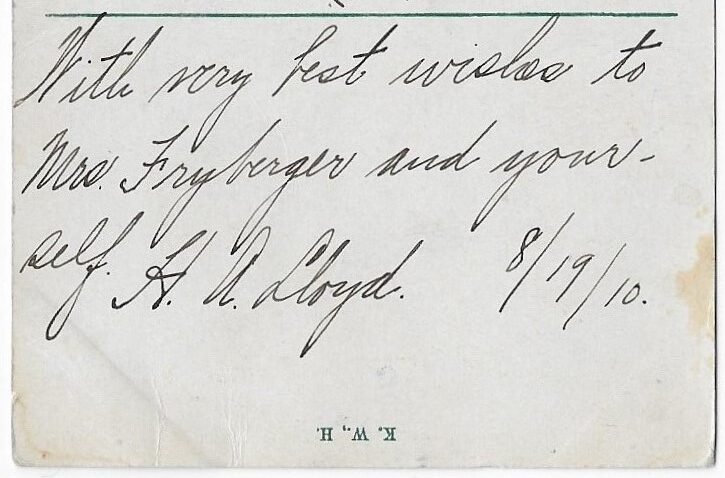 With very best wishes to
Mrs. Fryberger and your-
self. H. A. Lloyd. 8/19/10.
K. W., H.